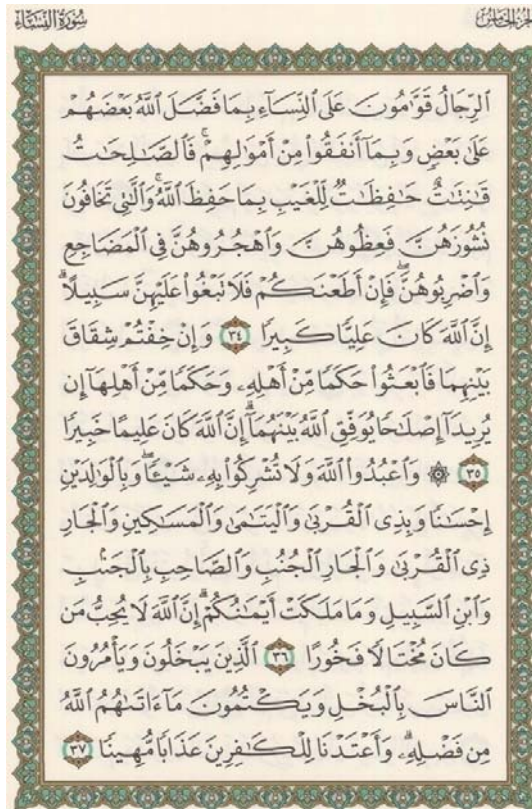 سُورَةُ النِّسَاءِ
الجُزْءُ الخَامِسُ
ٱلرِّجَالُ قَوَّٰمُونَ عَلَى ٱلنِّسَآءِ بِمَا فَضَّلَ ٱللَّهُ بَعْضَهُمْ
عَلَىٰ بَعْضٍ وَبِمَآ أَنفَقُوا۟ مِنْ أَمْوَٰلِهِمْ ۚ فَٱلصَّٰلِحَٰتُ
قَٰنِتَٰتٌ حَٰفِظَٰتٌ لِّلْغَيْبِ بِمَا حَفِظَ ٱللَّهُ ۚ وَٱلَّٰتِى تَخَافُونَ
نُشُوزَهُنَّ فَعِظُوهُنَّ وَٱهْجُرُوهُنَّ فِى ٱلْمَضَاجِعِ
وَٱضْرِبُوهُنَّ ۖ فَإِنْ أَطَعْنَكُمْ فَلَا تَبْغُوا۟ عَلَيْهِنَّ سَبِيلًا ۗ
إِنَّ ٱللَّهَ كَانَ عَلِيًّا كَبِيرًا ٣٤ وَإِنْ خِفْتُمْ شِقَاقَ
بَيْنِهِمَا فَٱبْعَثُوا۟ حَكَمًا مِّنْ أَهْلِهِۦ وَحَكَمًا مِّنْ أَهْلِهَآ إِن
يُرِيدَآ إِصْلَٰحًا يُوَفِّقِ ٱللَّهُ بَيْنَهُمَآ ۗ إِنَّ ٱللَّهَ كَانَ عَلِيمًا خَبِيرًا
٣٥ ۞ وَٱعْبُدُوا۟ ٱللَّهَ وَلَا تُشْرِكُوا۟ بِهِۦ شَيْـًٔا ۖ وَبِٱلْوَٰلِدَيْنِ
إِحْسَٰنًا وَبِذِى ٱلْقُرْبَىٰ وَٱلْيَتَٰمَىٰ وَٱلْمَسَٰكِينِ وَٱلْجَارِ
ذِى ٱلْقُرْبَىٰ وَٱلْجَارِ ٱلْجُنُبِ وَٱلصَّاحِبِ بِٱلْجَنۢبِ
وَٱبْنِ ٱلسَّبِيلِ وَمَا مَلَكَتْ أَيْمَٰنُكُمْ ۗ إِنَّ ٱللَّهَ لَا يُحِبُّ مَن
كَانَ مُخْتَالًا فَخُورًا ٣٦ ٱلَّذِينَ يَبْخَلُونَ وَيَأْمُرُونَ
ٱلنَّاسَ بِٱلْبُخْلِ وَيَكْتُمُونَ مَآ ءَاتَىٰهُمُ ٱللَّهُ
مِن فَضْلِهِۦ ۗ وَأَعْتَدْنَا لِلْكَٰفِرِينَ عَذَابًا مُّهِينًا ٣٧